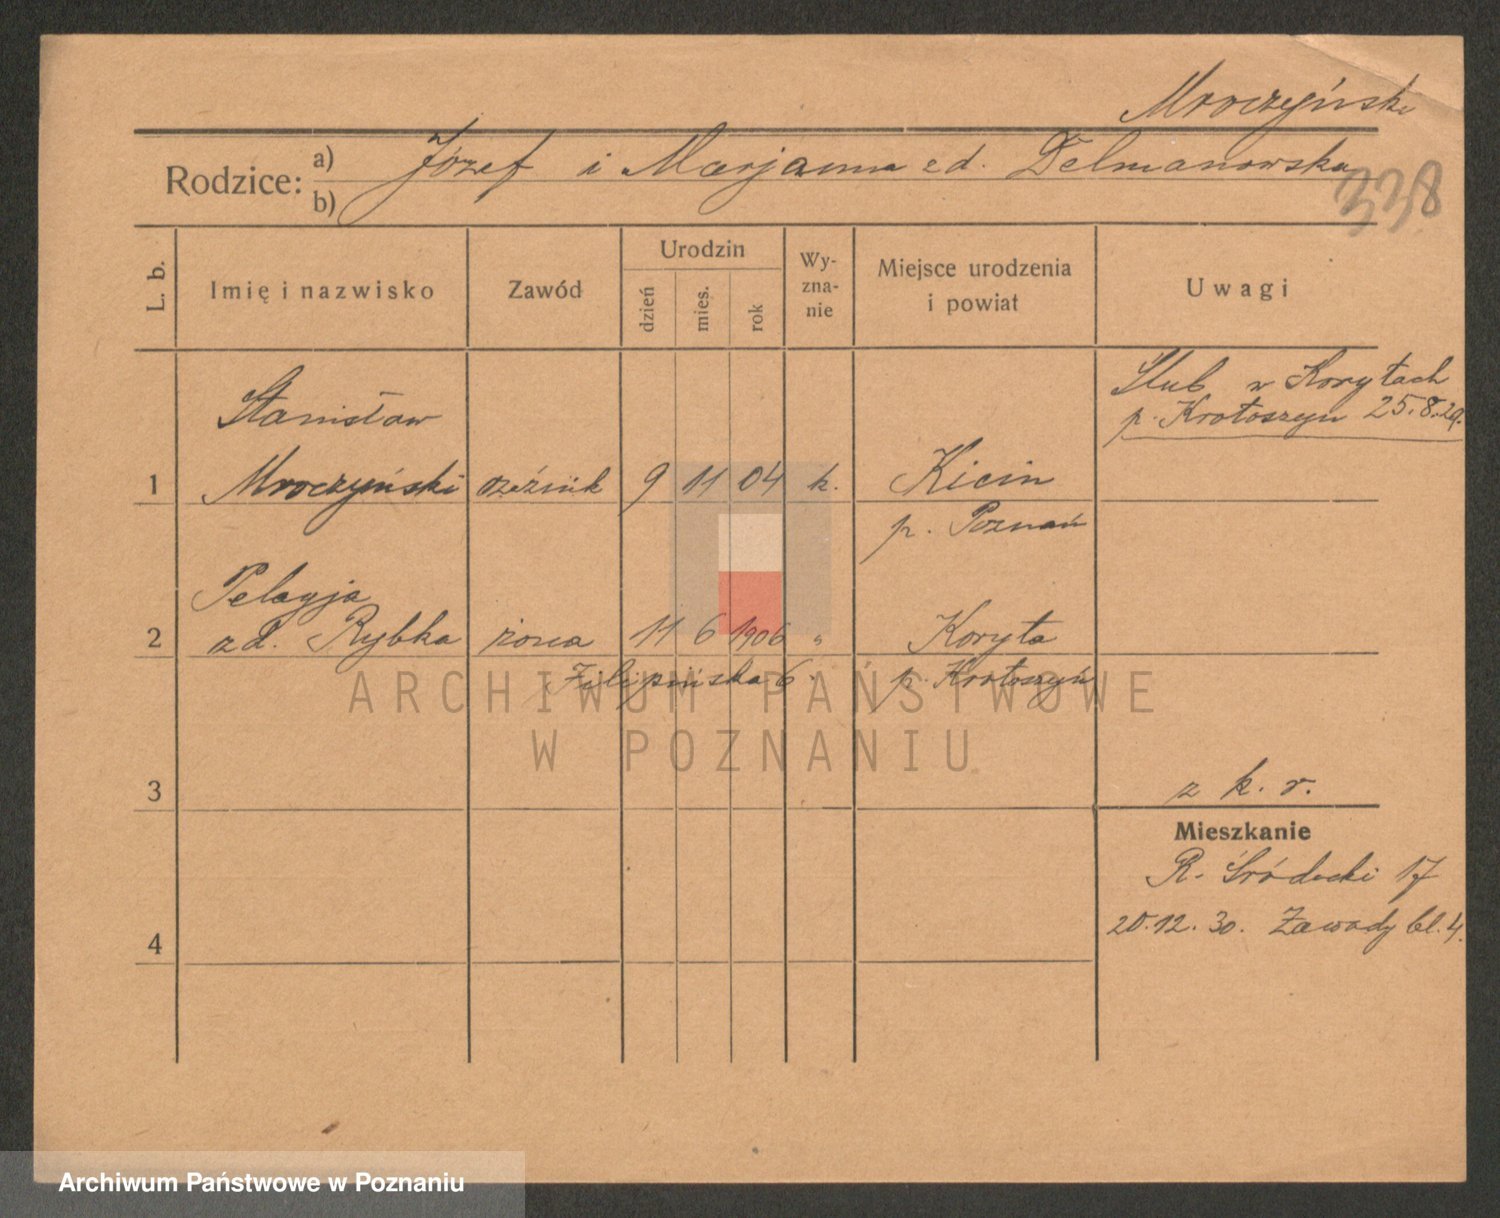 Mroczyński
Rodzice: a) Józef i Marjanna zd. Delmanowska
b)
338
L. b. Imię i nazwisko Zawód Urodzin dzień mies. rok Wy-zna-nie Miejsce urodzenia i powiat Uwagi
Ślub w Korytach
p. Krotoszyn 25.8.29.
Stanisław
1 Mroczyński rzeźnik 9 11 04 k. Kicin
p. Poznań
Pelagja
2 zd. Rybka żona 11 6 1906 " Koryta
Filipińska 6. p. Krotoszyn
ARCHIWUM PAŃSTWOWE
W POZNANIU
3 z k. r.
Mieszkanie
R. Śródecki 17
20.12.30. Zawady bl. 4.
4
Archiwum Państwowe w Poznaniu